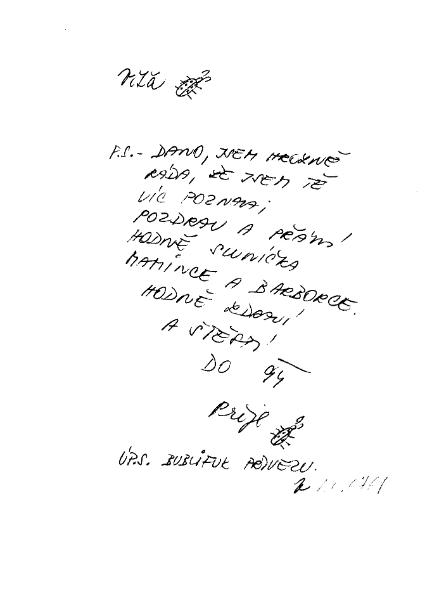 Víťa
P.S. - DANO, JSEM HROZNĚ
RÁDA, ŽE JSEM TĚ
VÍC POZNALA;
POZDRAV A PŘÁNÍ!
HODNĚ SLUNÍČKA
MAMINCE A BARBORCE.
HODNĚ ZDRAVÍ!
A ŠTĚSTÍ!
DO 94
ÚPS.